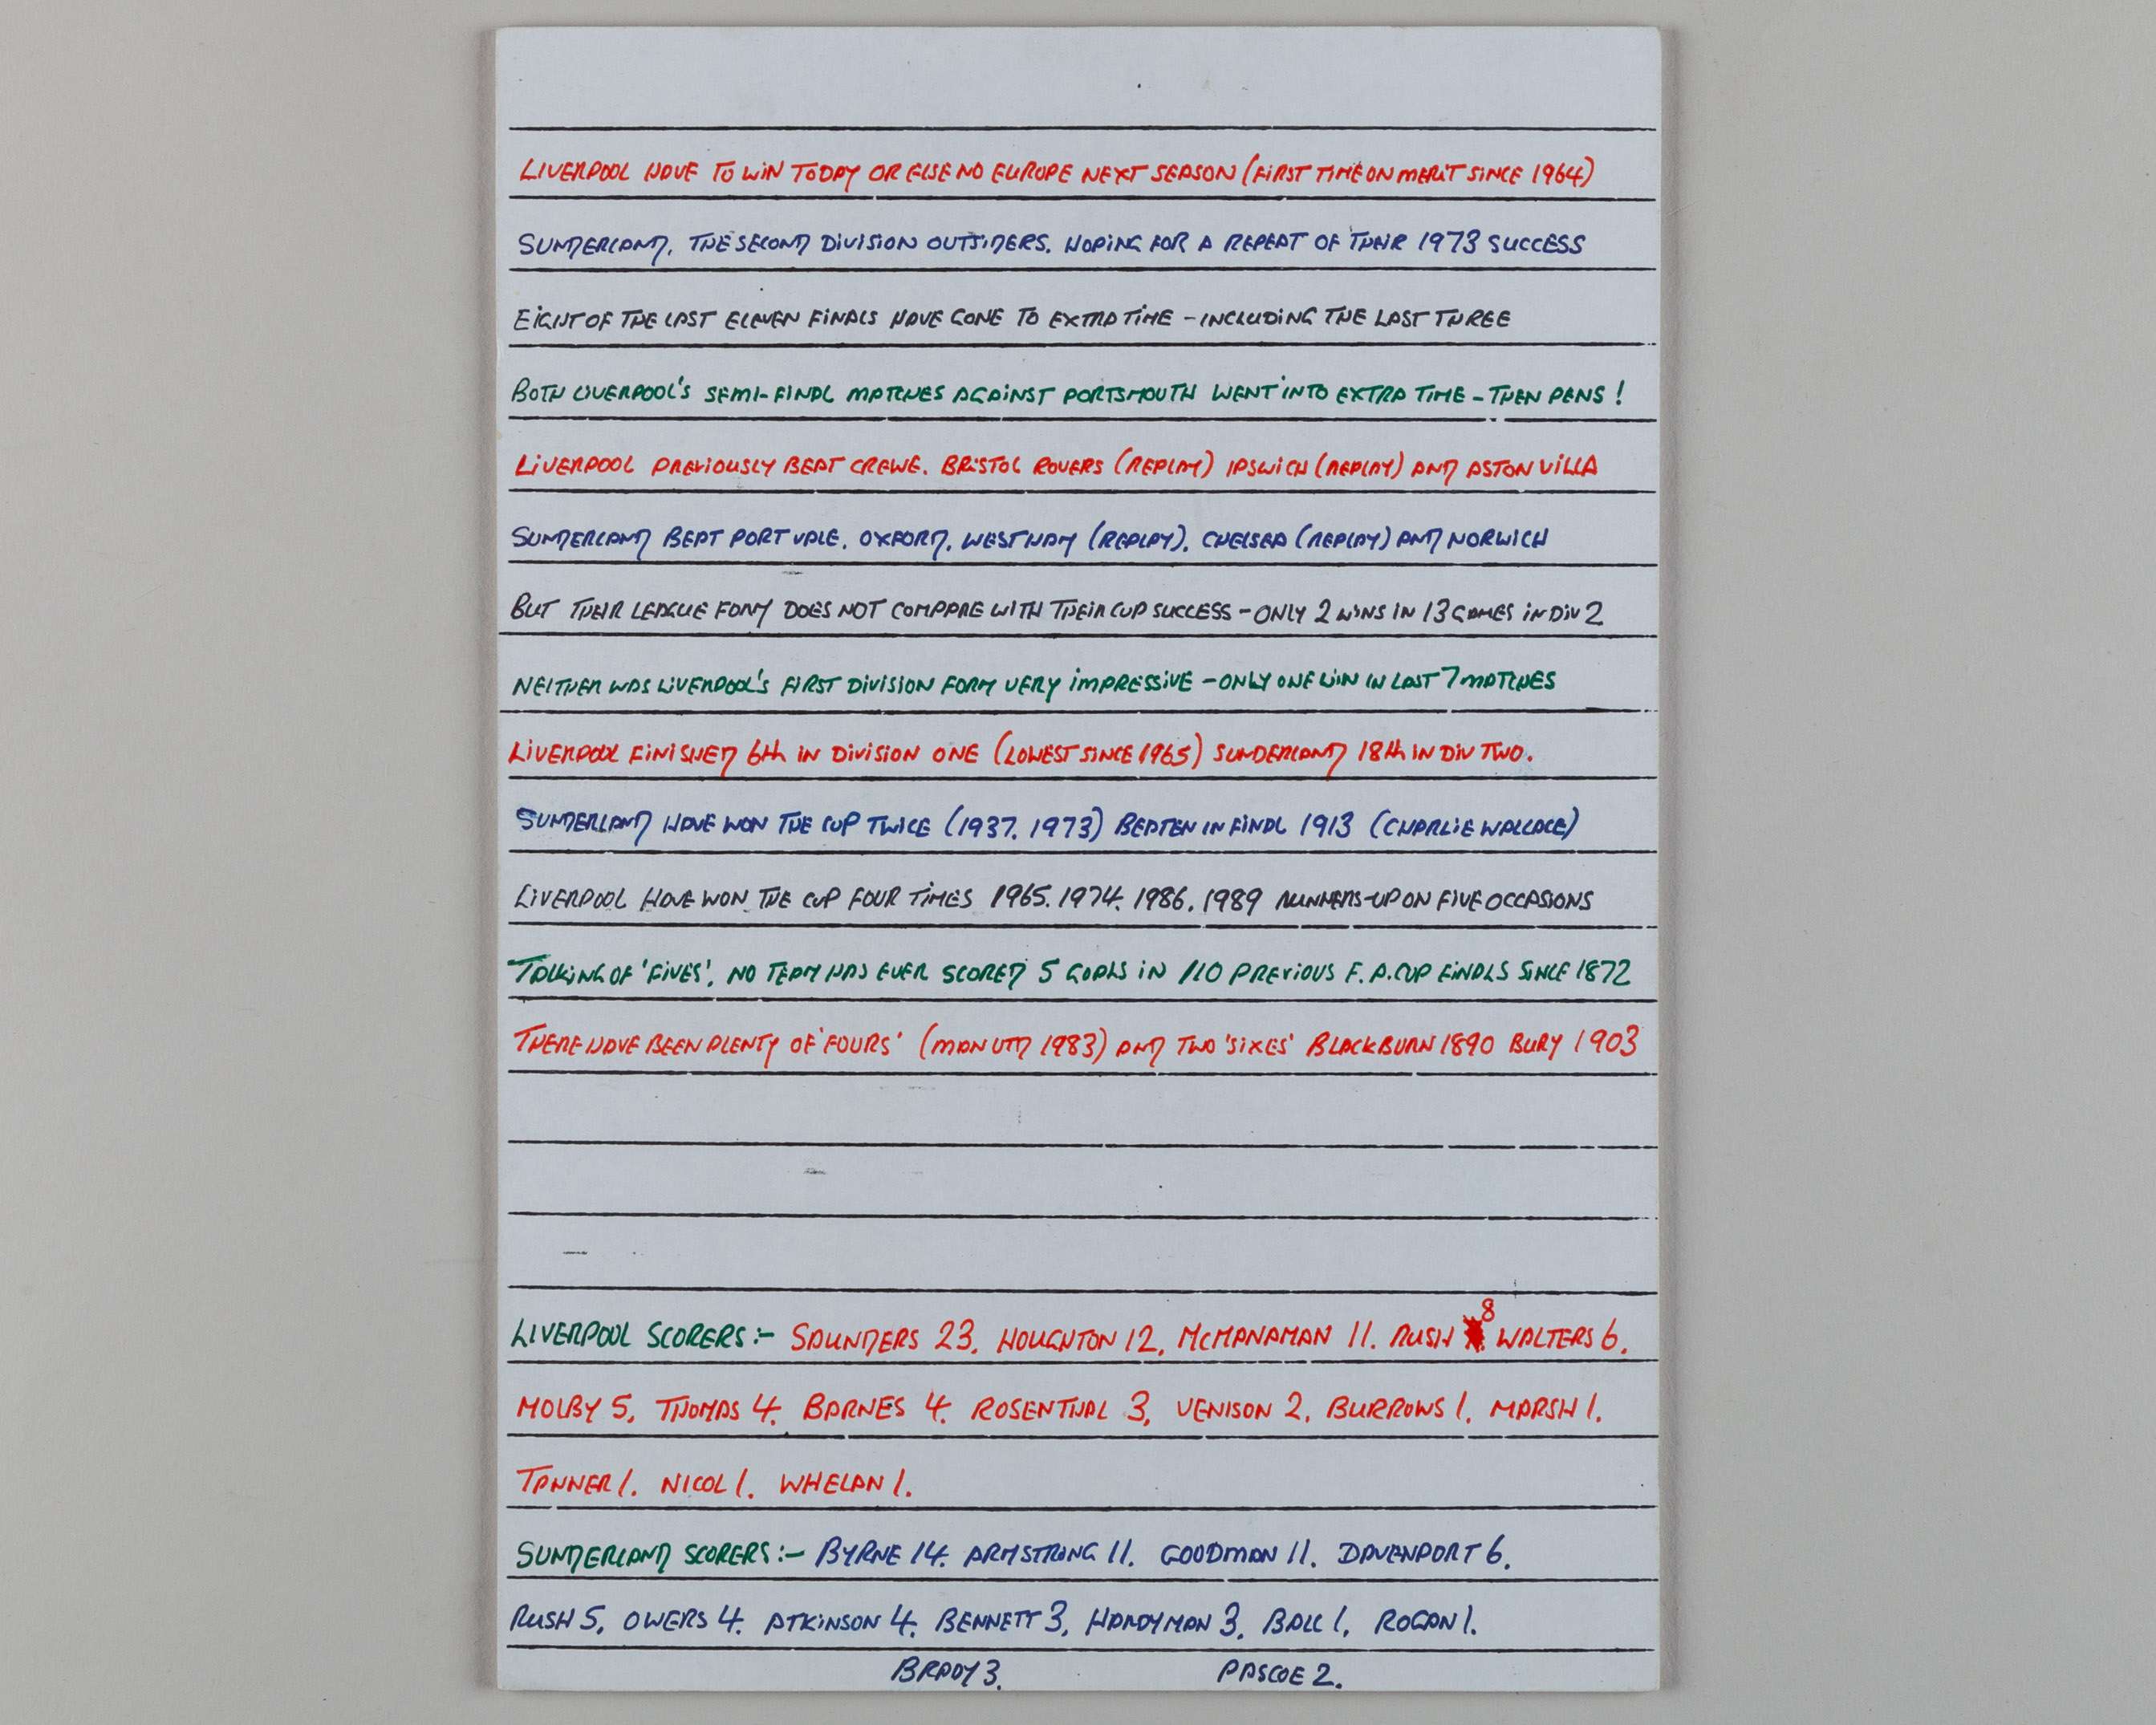 LIVERPOOL HAVE TO WIN TODAY OR ELSE NO EUROPE NEXT SEASON (FIRST TIME ON MERIT SINCE 1964)
SUNDERLAND, THE SECOND DIVISION OUTSIDERS. HOPING FOR A REPEAT OF THEIR 1973 SUCCESS
EIGHT OF THE LAST ELEVEN FINALS HAVE GONE TO EXTRA TIME - INCLUDING THE LAST THREE
BOTH LIVERPOOL'S SEMI-FINAL MATCHES AGAINST PORTSMOUTH WENT INTO EXTRA TIME - THEN PENS!
LIVERPOOL PREVIOUSLY BEAT CREWE. BRISTOL ROVERS (REPLAY) IPSWICH (REPLAY) AND ASTON VILLA
SUNDERLAND BEAT PORT VALE, OXFORD, WEST HAM (REPLAY), CHELSEA (REPLAY) AND NORWICH
BUT THEIR LEAGUE FORM DOES NOT COMPARE WITH THEIR CUP SUCCESS - ONLY 2 WINS IN 13 GAMES IN DIV 2
NEITHER WAS LIVERPOOL'S FIRST DIVISION FORM VERY IMPRESSIVE - ONLY ONE WIN IN LAST 7 MATCHES
LIVERPOOL FINISHED 6th IN DIVISION ONE (LOWEST SINCE 1965) SUNDERLAND 18th IN DIV TWO.
SUNDERLAND HAVE WON THE CUP TWICE (1937. 1973) BEATEN IN FINAL 1913 (CHARLIE WALLACE)
LIVERPOOL HAVE WON THE CUP FOUR TIMES 1965. 1974. 1986. 1989 RUNNERS-UP ON FIVE OCCASIONS
TALKING OF 'FIVES', NO TEAM HAS EVER SCORED 5 GOALS IN 110 PREVIOUS F.A. CUP FINALS SINCE 1872
THERE HAVE BEEN PLENTY OF 'FOURS' (MAN UTD 1983) AND TWO 'SIXES' BLACKBURN 1890 BURY 1903
LIVERPOOL SCORERS :- SAUNDERS 23, HOUGHTON 12, MCMANAMAN 11. RUSH 8 WALTERS 6.
MOLBY 5, THOMAS 4. BARNES 4. ROSENTHAL 3, VENISON 2, BURROWS 1. MARSH 1.
TANNER 1. NICOL 1. WHELAN 1.
SUNDERLAND SCORERS :- BYRNE 14. ARMSTRONG 11. GOODMAN 11. DAVENPORT 6.
RUSH 5, OWERS 4. ATKINSON 4. BENNETT 3, HARDYMAN 3. BALL 1, ROGAN 1.
BRADY 3. PASCOE 2.